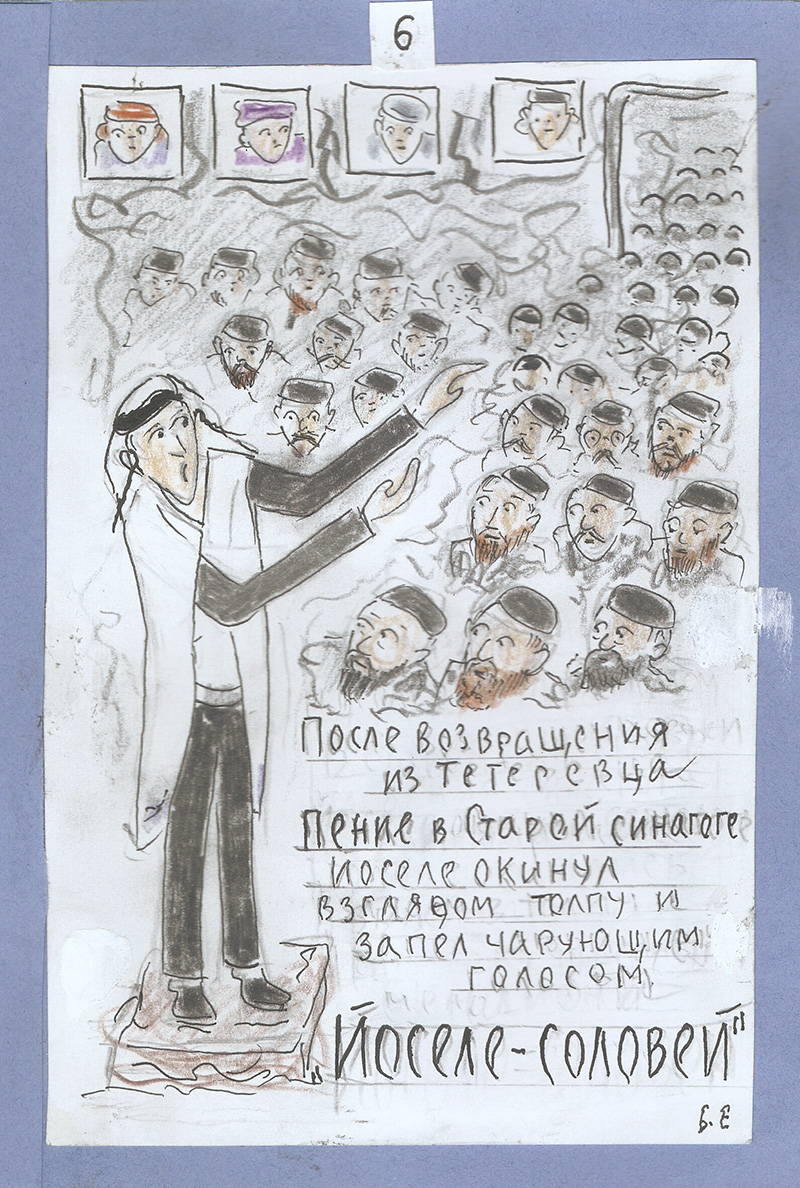 6
После возвращения
из Тетеревца
Пение в Старой синагоге
Иоселе окинул
взглядом толпу и
запел чарующим
голосом.
"Йоселе-соловей"
Б. Е